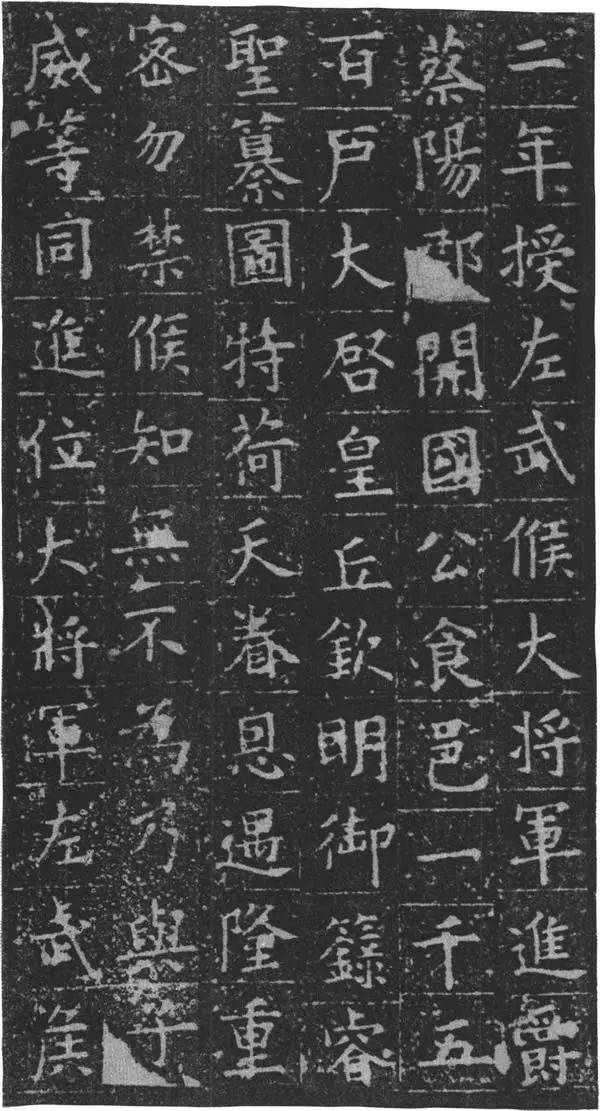 二年授左武候大将軍進爵
蔡陽郡開國公食邑一千五
百戸大啓皇丘欽明御籙睿
聖纂圖特荷天眷恩遇隆重
密勿禁候知無不為乃與子
威等同進位大將軍左武候